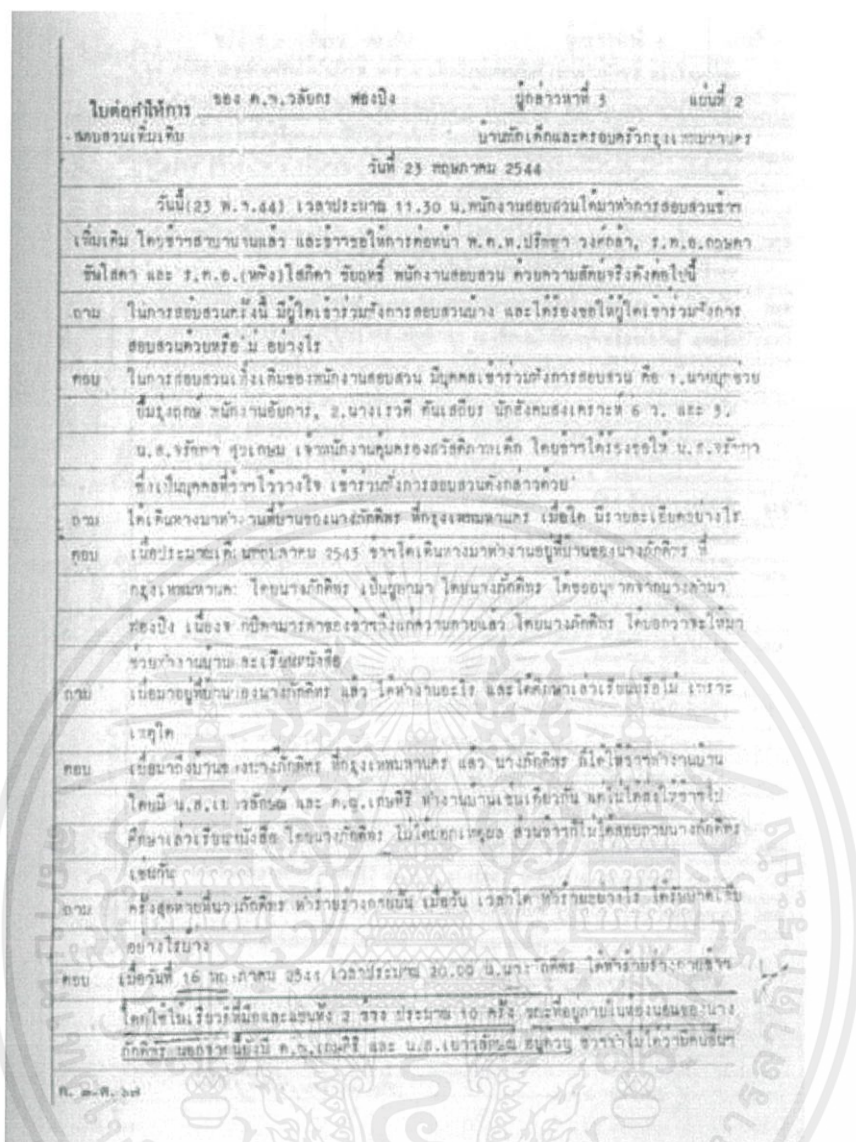 ใบต่อคำให้การ ของ ด.ญ.วลัยกร ฟองปิง ผู้กล่าวหาที่ 3 แผ่นที่ 2
- สอบสวนเพิ่มเติม บ้านพักเด็กและครอบครัวกรุงเทพมหานคร
วันที่ 23 พฤษภาคม 2544
วันนี้(23 พ.ค.44) เวลาประมาณ 11.30 น.พนักงานสอบสวนได้มาทำการสอบสวนข้าฯ
เพิ่มเติม โดยข้าฯสาบานตนแล้ว และข้าฯขอให้การต่อหน้า พ.ต.ท.ปรัชญา วงศ์กล้า, ร.ต.อ.กฤษดา
ขันโสดา และ ร.ต.อ.(หญิง)โสภิดา ชัยฤทธิ์ พนักงานสอบสวน ด้วยความสัตย์จริงดังต่อไปนี้
ถาม ในการสอบสวนครั้งนี้ มีผู้ใดเข้าร่วมฟังการสอบสวนบ้าง และได้ร้องขอให้ผู้ใดเข้าร่วมฟังการ
สอบสวนด้วยหรือไม่ อย่างไร
ตอบ ในการสอบสวนเพิ่มเติมของพนักงานสอบสวน มีบุคคลเข้าร่วมฟังการสอบสวน คือ 1.นายบุญช่วย
ยิ้มรุ่งฤกษ์ พนักงานอัยการ, 2.นางเรวดี ตันเสถียร นักสังคมสงเคราะห์ 6 ว. และ 3.
น.ส.จริยา สุขเกษม เจ้าพนักงานคุ้มครองสวัสดิภาพเด็ก โดยข้าฯได้ร้องขอให้ น.ส.จริยา
ซึ่งเป็นบุคคลที่ข้าฯไว้วางใจ เข้าร่วมฟังการสอบสวนดังกล่าวด้วย
ถาม ได้เดินทางมาทำงานที่บ้านของนางภักดิพร ที่กรุงเทพมหานคร เมื่อใด มีรายละเอียดอย่างไร
ตอบ เมื่อประมาณเดือนตุลาคม 2543 ข้าฯได้เดินทางมาทำงานอยู่ที่บ้านของนางภักดิพร ที่
กรุงเทพมหานคร โดยนางภักดิพร เป็นผู้พามา โดยนางภักดิพร ได้ขออนุญาตจากนางคำมา
ฟองปิง เนื่องจากบิดามารดาของข้าฯถึงแก่ความตายแล้ว โดยนางภักดิพร ได้บอกว่าจะให้มา
ช่วยทำงานบ้านและเรียนหนังสือ
ถาม เมื่อมาอยู่ที่บ้านของนางภักดิพร แล้ว ได้ทำงานอะไร และได้ศึกษาเล่าเรียนหรือไม่ เพราะ
เหตุใด
ตอบ เมื่อมาถึงบ้านของนางภักดิพร ที่กรุงเทพมหานคร แล้ว นางภักดิพร ก็ได้ให้ข้าฯทำงานบ้าน
โดยมี น.ส.เยาวลักษณ์ และ ด.ญ.เกษศิริ ทำงานบ้านเช่นเดียวกัน แต่ไม่ได้ส่งให้ข้าฯไป
ศึกษาเล่าเรียนหนังสือ โดยนางภักดิพร ไม่ได้บอกเหตุผล ส่วนข้าฯก็ไม่ได้สอบถามนางภักดิพร
เช่นกัน
ถาม ครั้งสุดท้ายที่นางภักดิพร ทำร้ายร่างกายนั้น เมื่อวัน เวลาใด ทำร้ายอย่างไร ได้รับบาดเจ็บ
อย่างไรบ้าง
ตอบ เมื่อวันที่ 16 พฤษภาคม 2544 เวลาประมาณ 20.00 น.นางภักดิพร ได้ทำร้ายร่างกายข้าฯ
โดยใช้ไม้เรียวตีที่มือและแขนทั้ง 2 ข้าง ประมาณ 10 ครั้ง ขณะที่อยู่ภายในห้องนอนของนาง
ภักดิพร นอกจากนี้ยังมี ด.ญ.เกษศิริ และ น.ส.เยาวลักษณ์ อยู่ด้วย
ต. ๓-ต. ๖๗